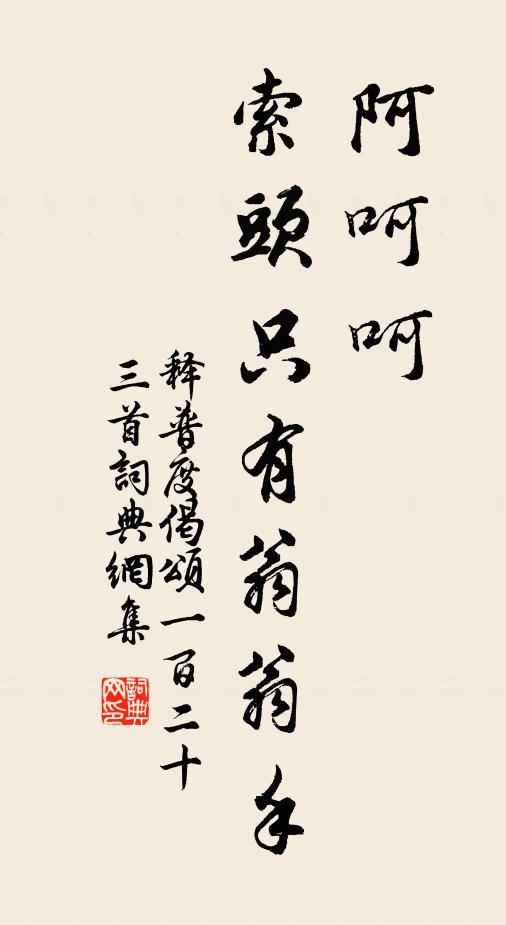 阿呵呵
索頭只有翁翁手
释普度偈頌一百二十
三首詞典網集
詞典
网印